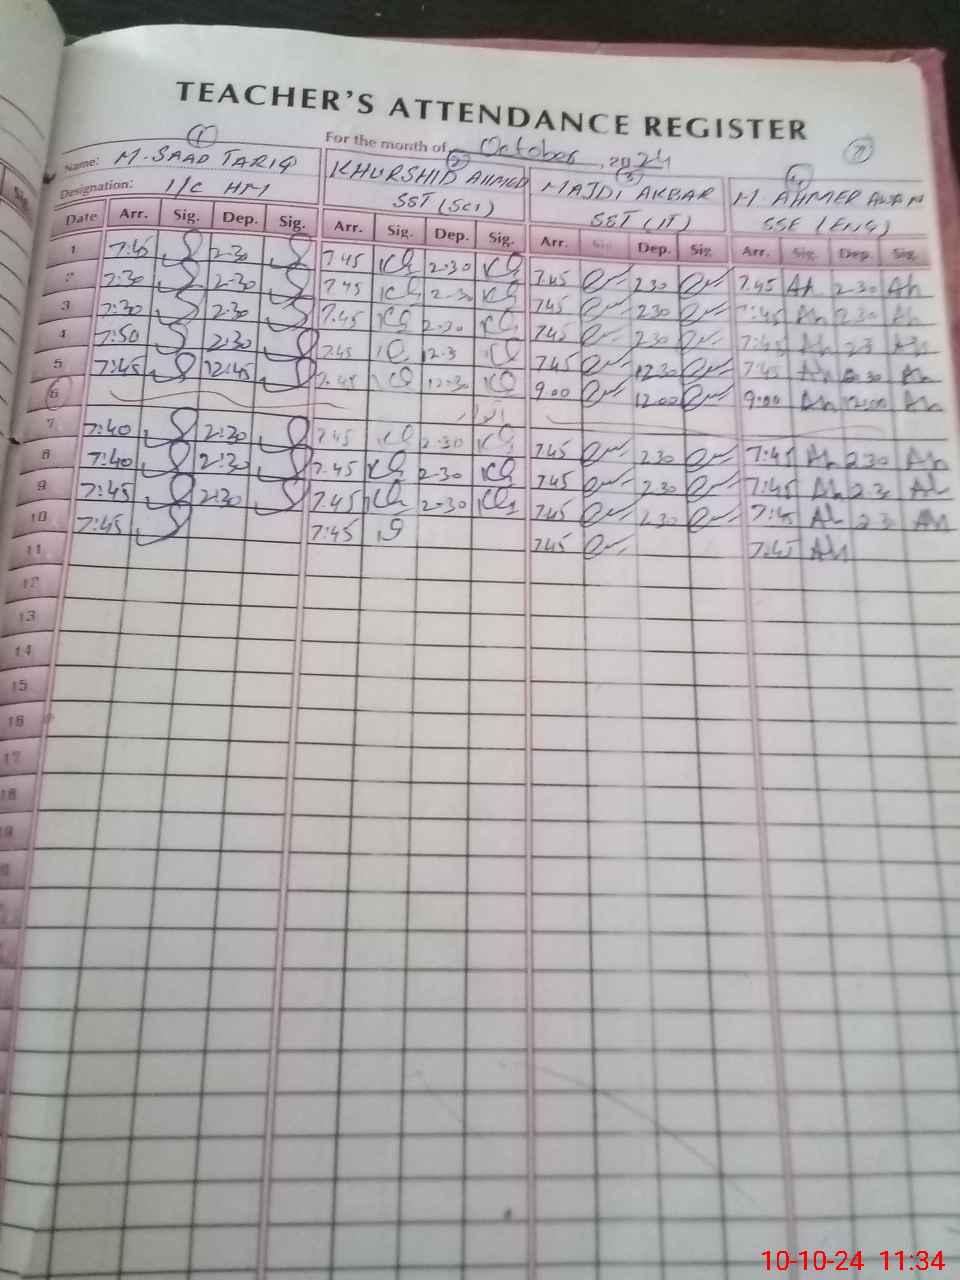 TEACHER'S ATTENDANCE REGISTER
For the month of October 2024
1 2 3 4
Name: M. SAAD TARIQ KHURSHID AHMED MAJDI AKBAR M. AHMER AWAN
Designation: I/C HM SST (SCI) SST (IT) SSE (ENG)
Date Arr. Sig. Dep. Sig. Arr. Sig. Dep. Sig. Arr. Sig. Dep. Sig. Arr. Sig. Dep. Sig.
1 7:45 2:30 7.45 2-30 7.45 2.30 7.45 Ah 2-30 Ah
2 7:30 2:30 7.45 2-30 7.45 2.30 7:45 Ah 2.30 Ah
3 7:30 2:30 7.45 2-30 7.45 2.30 7:45 Ah 2.3 Ah
4 7:50 2:30 7.45 12.3 7.45 12.30 7.45 Ah Ah
5 7:45 12:45 7.45 12.30 9.00 12.00 9.00 Ah 12.00 Ah
6
7 7:40 2:30 7.45 2.30 7.45 2.30 7:45 Ah 2.30 Ah
8 7:40 2:30 7.45 2.30 7.45 2.30 7:45 Ah 2.3 Ah
9 7:45 2:30 7.45 2-30 7.45 2.30 7:45 Ah 2.3 Ah
10 7:45 7:45 7.45 7.45 Ah
11
12
13
14
15
16
17
18
19
10-10-24 11:34